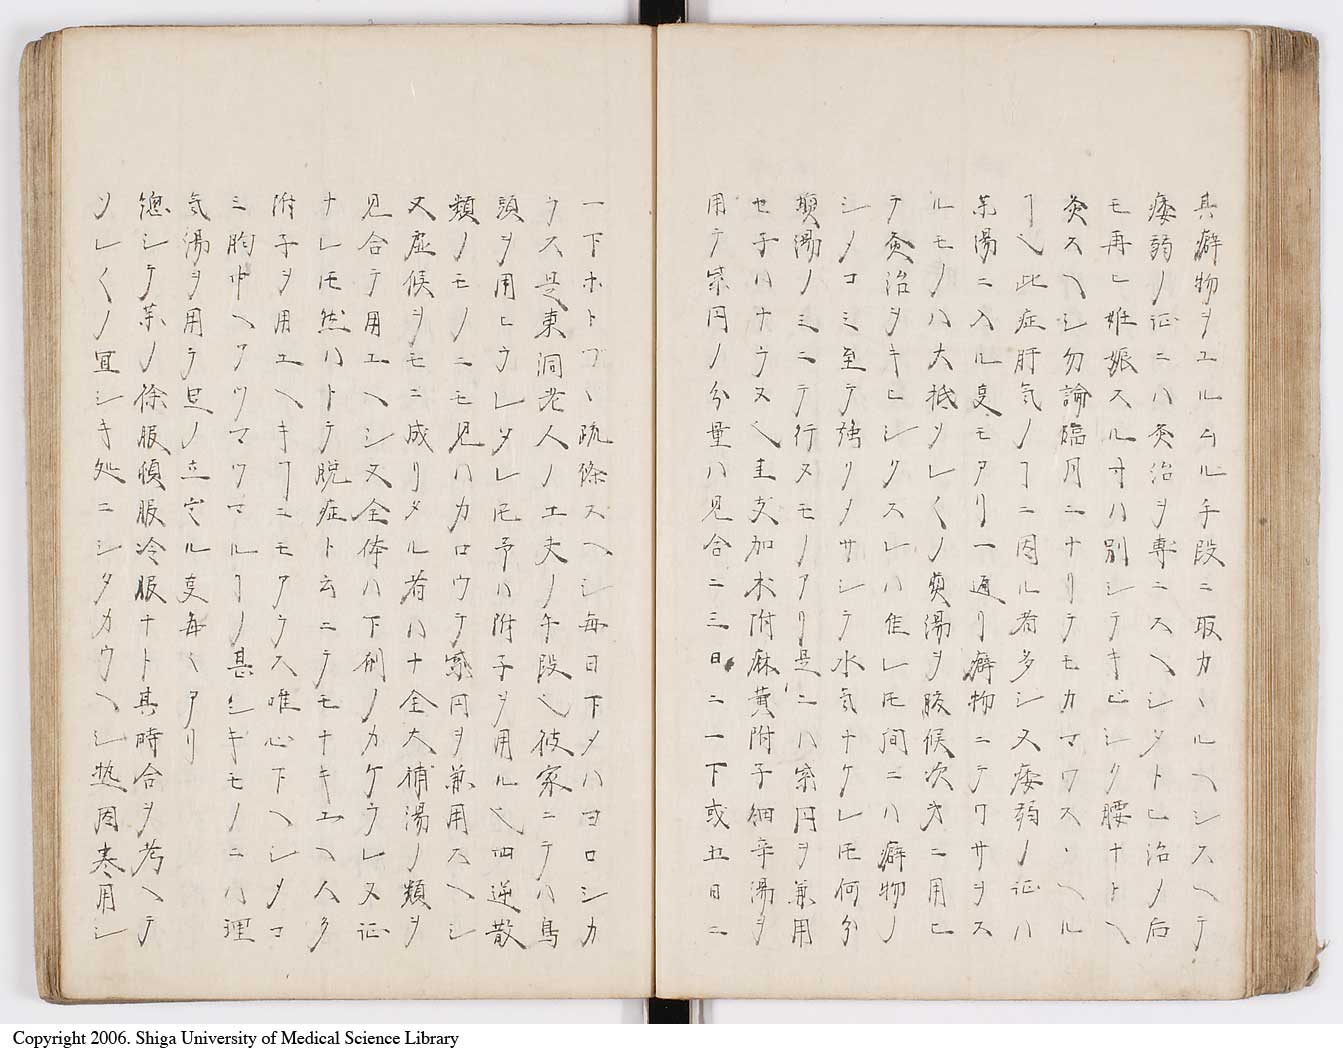 其癖物ヲユルムル手段ニ取カヽルヘシスヘテ
痿弱ノ証ニハ灸治ヲ専ニスヘシタトヒ治メ后
モ再ヒ妊娠スル寸ハ別シテキビシク腰ナトヘ
灸スヘシ勿論臨月ニナリテモカマワスヽヘル
ヿ也此症肝気ノヿニ因ル者多シ又痿弱ノ証ハ
湯ニ入ル夏モアリ一通リ癖物ニテワサヲス
ルモノハ大抵ソレ〱ノ煎湯ヲ腹候次第ニ用ヒ
テ灸治ヲキビシクスレハ隹レ𪜈間ニハ癖物ノ
シノコミ至テ強リメサシテ水気ナケレ𪜈何分
煎湯ノミニテ行ヌモノアリ是ニハ紫円ヲ兼用
セ子ハナラヌ也圭支加朮附麻黄附子細辛湯ヲ
用テ紫円ノ分量ハ見合ニ三日ニ一下或五日ニ
一下ホトヅヽ疏滌スヘシ毎日下メハヨロシカ
ラス是東洞老人ノ工夫ノ手段也彼家ニテハ烏
頭ヲ用ヒラレタレ𪜈予ハ附子ヲ用ル也四逆散
類ノモノニモ見ハカロウテ紫円ヲ兼用スヘシ
又虚候ヲモニ成リタル者ハ十全大補湯ノ類ヲ
見合テ用ユヘシ又全体ハ下剤ノカケラレヌ証
ナレ𪜈然ハトテ脱症ト云ニテモナキユヘ人タ
附子ヲ用ユヘキヿニモアラス唯心下ヘシメコ
ミ胸中ヘアツマツマルヿノ甚シキモノニハ理
気湯ヲ用テ足ノ立定ル夏毎〱アリ
總シテ薬ノ徐服頓服冷服ナト其時合ヲ考ヘテ
ソレ〱ノ宜シキ処ニシタカウヘシ熱因寒用シ
Copyright 2006. Shiga University of Medical Science Library